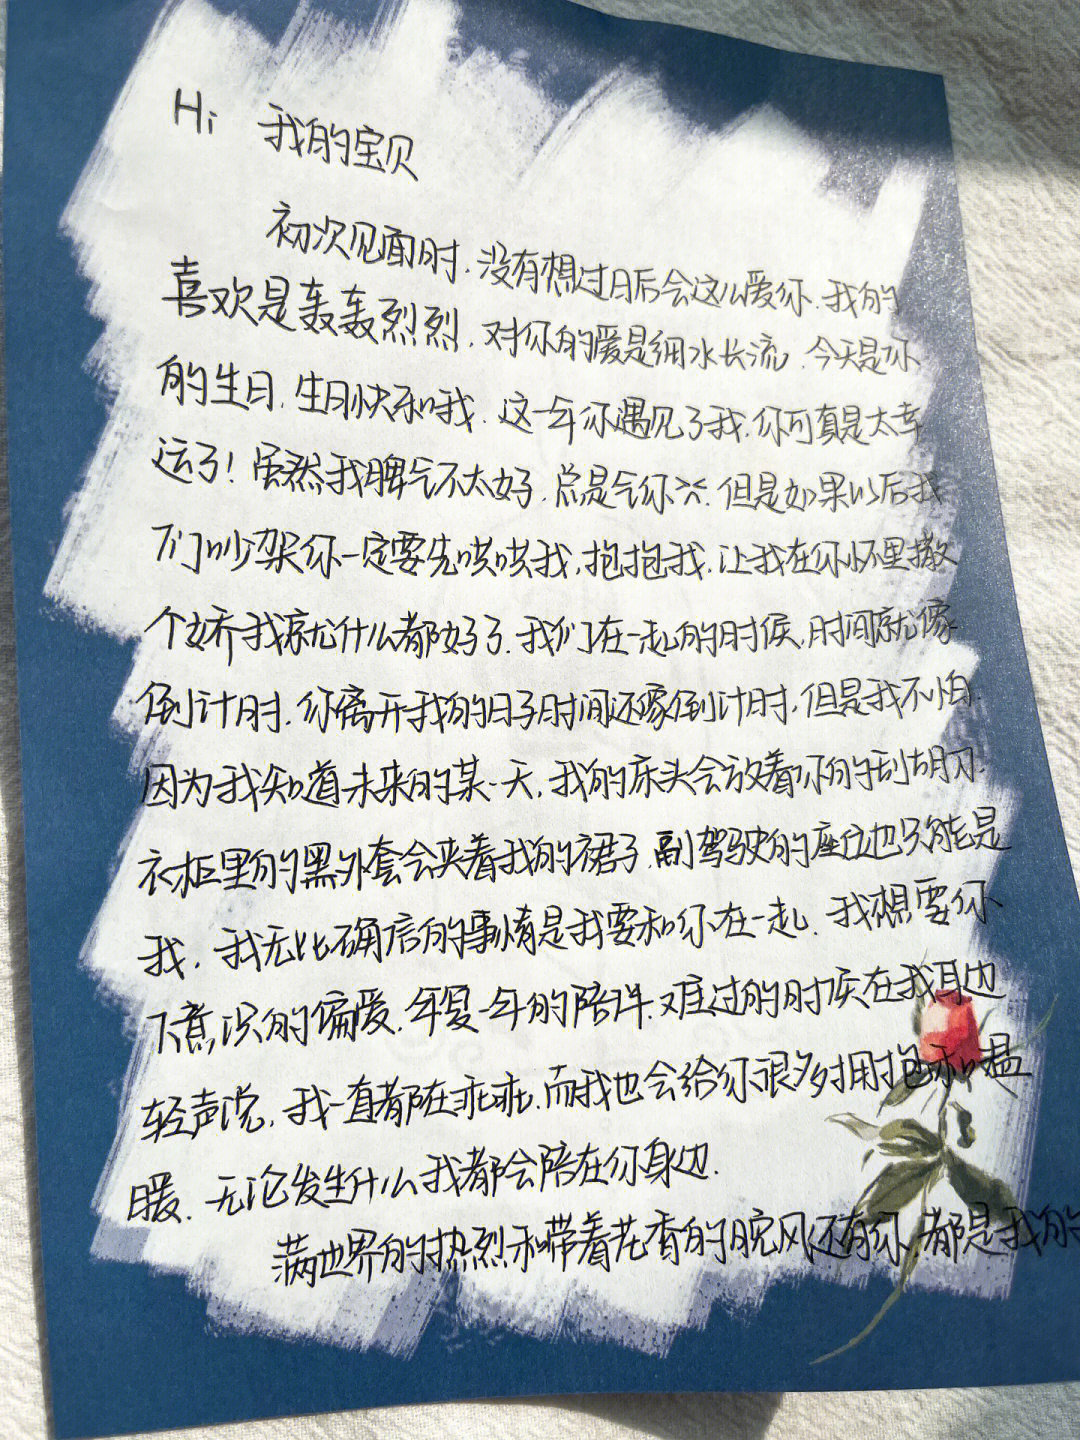 Hi 我的宝贝
初次见面时,没有想过日后会这么爱你.我的
喜欢是轰轰烈烈,对你的爱是细水长流.今天是你
的生日,生日快乐和我.这一年你遇见了我,你可真是太幸
运了!虽然我脾气不太好,总是气你,但是如果以后我
们吵架你一定要先哄哄我,抱抱我,让我在你怀里撒
个娇我就什么都好了.我们在一起的时候,时间就像
倒计时,你离开我的日子时间还像倒计时,但是我不怕
因为我知道未来的某一天,我的床头会放着你的刮胡刀
衣柜里的黑外套会夹着我的裙子,副驾驶的座位也只能是
我,我无比确信的事情是我要和你在一起,我想要你
下意识的偏爱,年复一年的陪伴,难过的时候在我耳边
轻声说,我一直都在乖乖,而我也会给你很多拥抱和温
暖,无论发生什么我都会陪在你身边.
满世界的热烈和带着花香的晚风还有你 都是我的